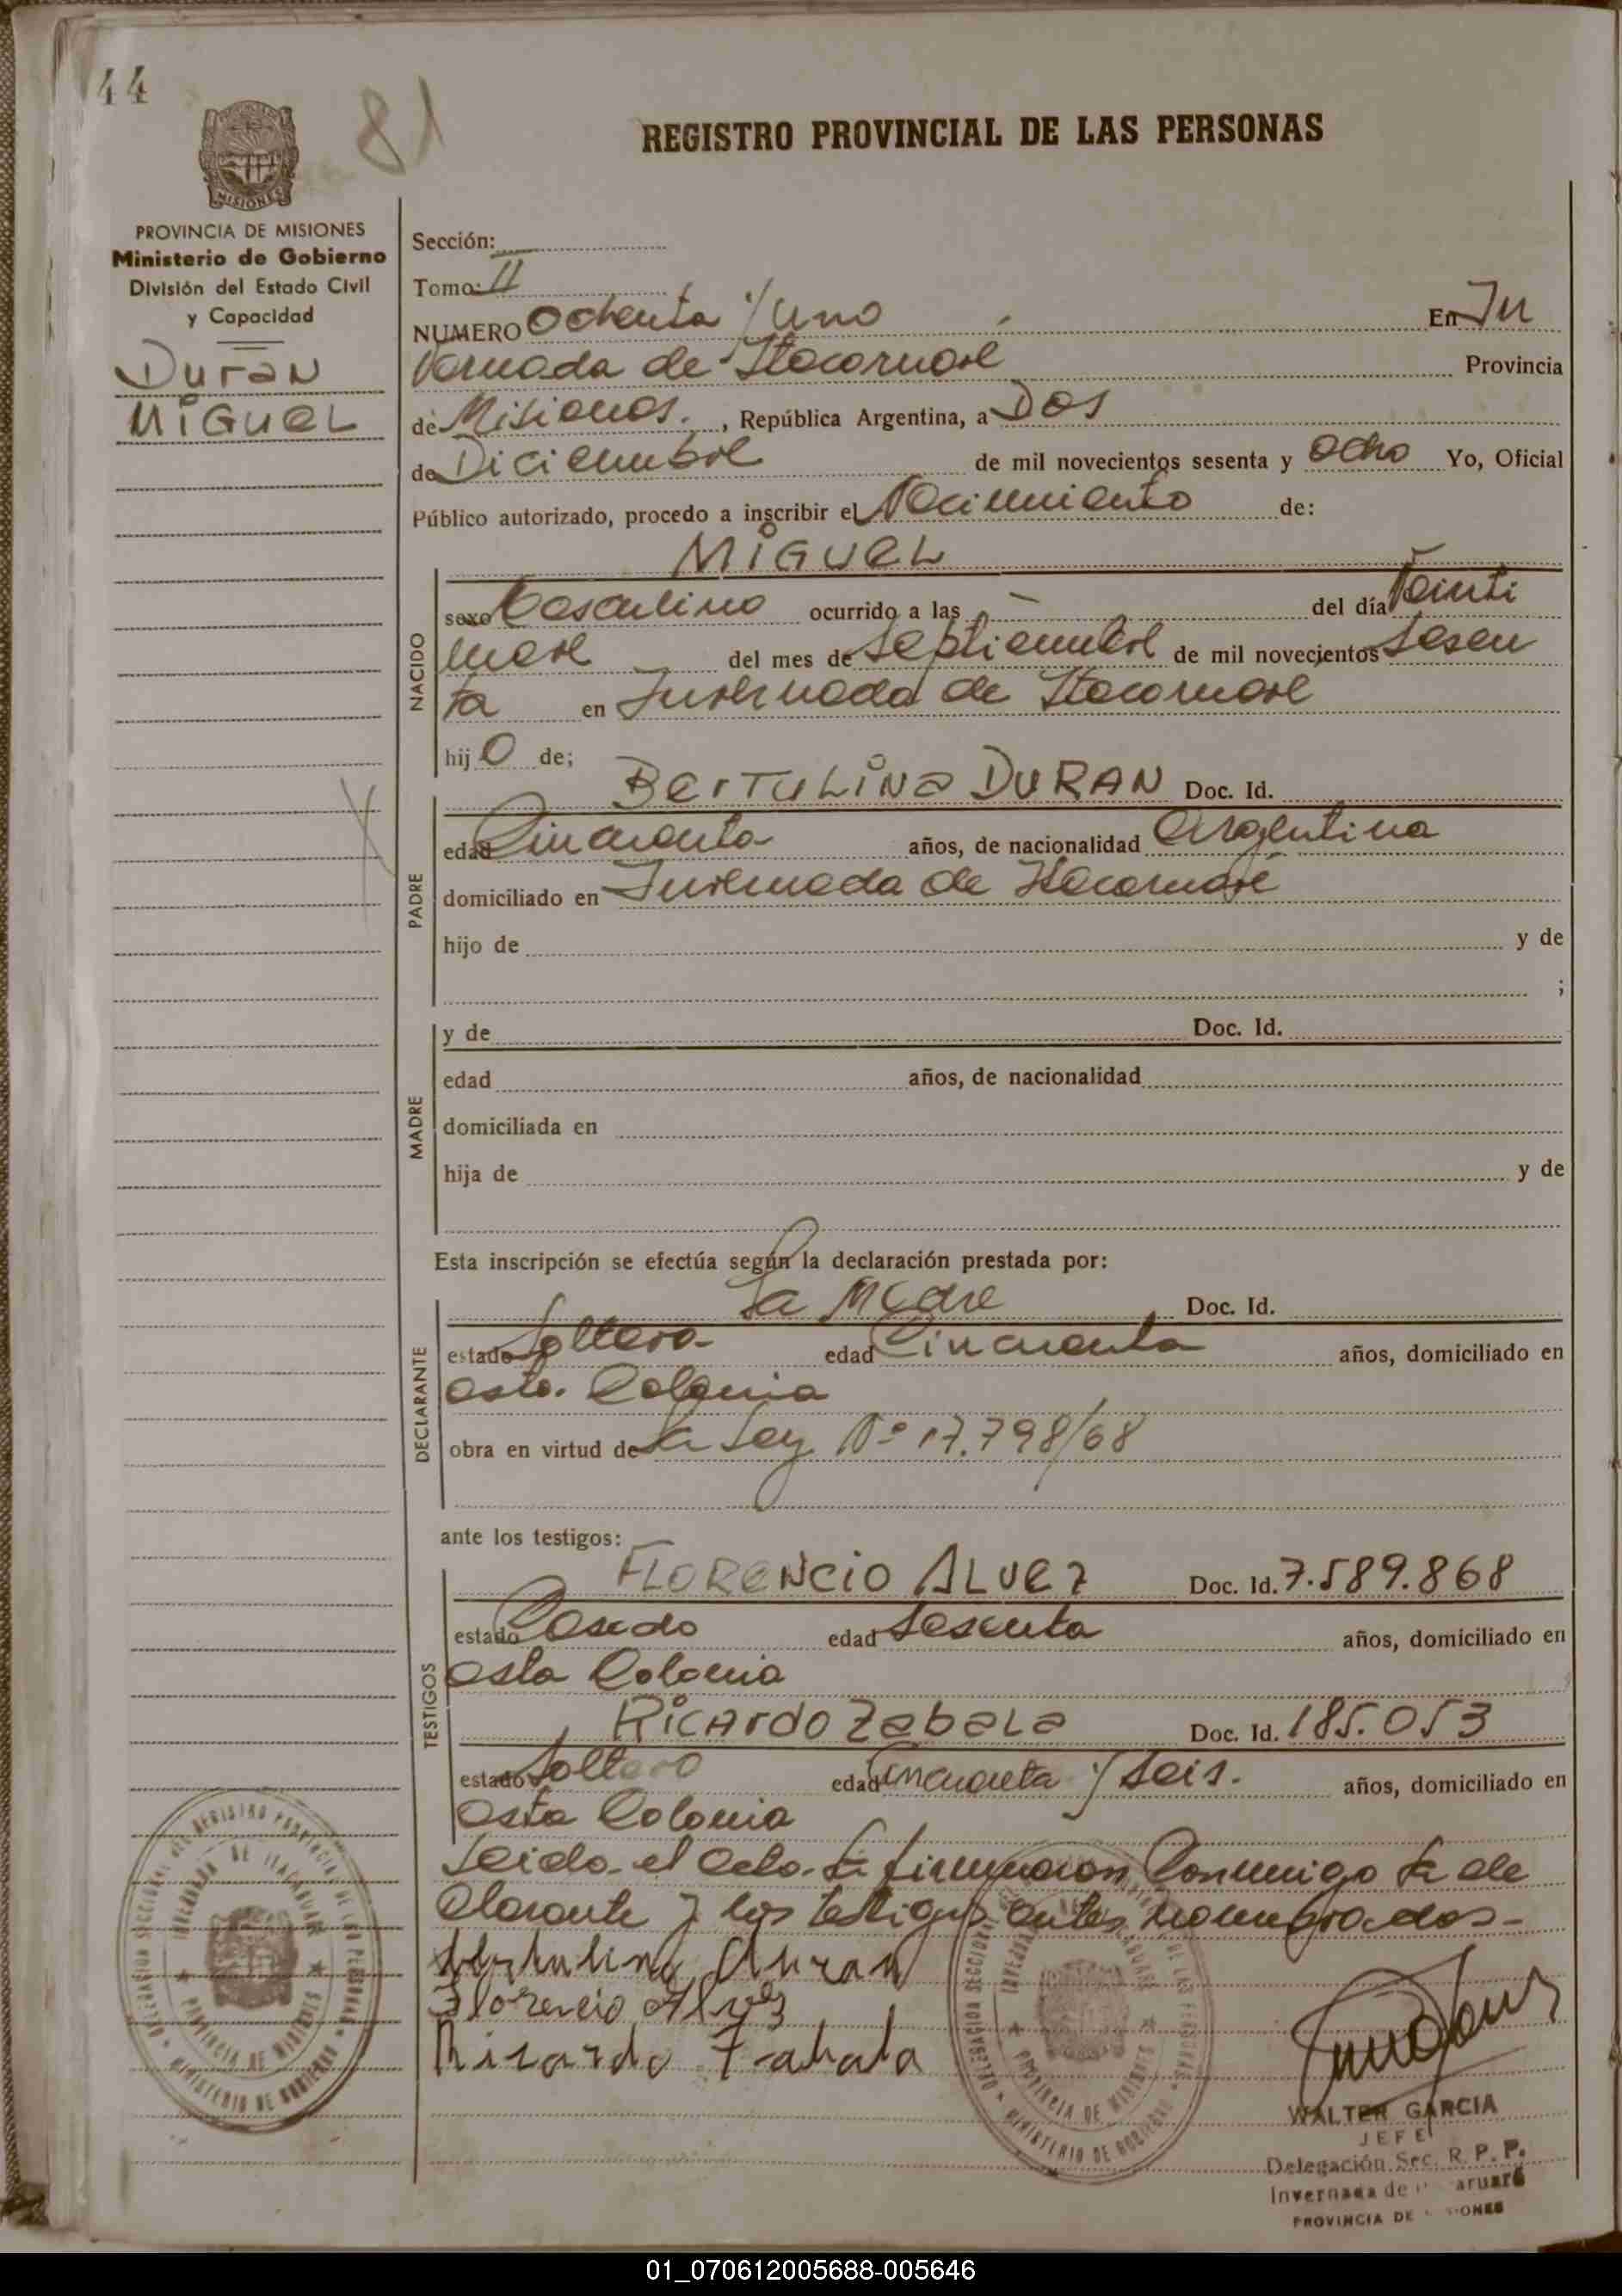 44
81
REGISTRO PROVINCIAL DE LAS PERSONAS
MISIONES
PROVINCIA DE MISIONES
Ministerio de Gobierno
División del Estado Civil
y Capacidad
Duran
MiGueL
Sección:
Tomo: II
NUMERO Ochenta y Uno En In
vernada de Itacaruare Provincia
de Misiones. , República Argentina, a Dos
de Diciembre de mil novecientos sesenta y ocho Yo, Oficial
Público autorizado, procedo a inscribir el Nacimiento de:
MiGUeL
NACIDO
sexo Masculino ocurrido a las - del día Veinti
nueve del mes de Septiembre de mil novecientos Sesen
ta en Invernada de Itacaruare
hij o de;
BerTuLiNa DURAN Doc. Id.
PADRE
edad Cincuenta años, de nacionalidad Argentina
domiciliado en Invernada de Itacaruare
hijo de y de
;
MADRE
y de Doc. Id.
edad años, de nacionalidad
domiciliada en
hija de y de
Esta inscripción se efectúa según la declaración prestada por:
DECLARANTE
La Madre Doc. Id.
estado Soltera edad Cincuenta años, domiciliado en
esta Colonia
obra en virtud de La Ley Nº 17.798/68
ante los testigos:
TESTIGOS
FLOReNCiO ALVez Doc. Id. 7.589.868
estado Casado edad Sesenta años, domiciliado en
esta Colonia
RicArdo Zabala Doc. Id. 185.053
estado Soltero edad Cincuenta y Seis. años, domiciliado en
esta Colonia
Leida el Acta La firmaron Conmigo La de
clarante y los testigos antes nombrados-
Bertulina Duran
Florencio Alvez
Ricardo Zabala
DELEGACION SECCIONAL DEL REGISTRO PROVINCIAL DE LAS PERSONAS
INVERNADA DE ITACARUARE
PROVINCIA DE MISIONES
MINISTERIO DE GOBIERNO
WALTER GARCIA
JEFE
Delegación Sec. R. P. P.
Invernada de aruaré
PROVINCIA DE IONES
01_070612005688-005646